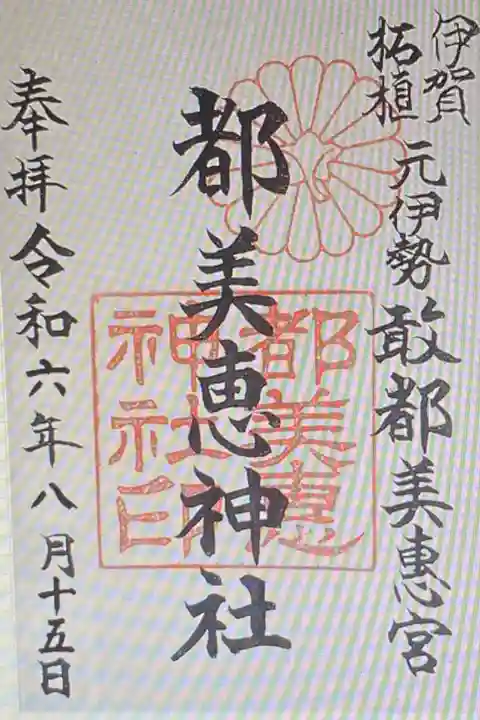 伊賀
柘植
元伊勢敢都美恵宮
都美恵神社
都美恵
神社印
奉拝令和六年八月十五日